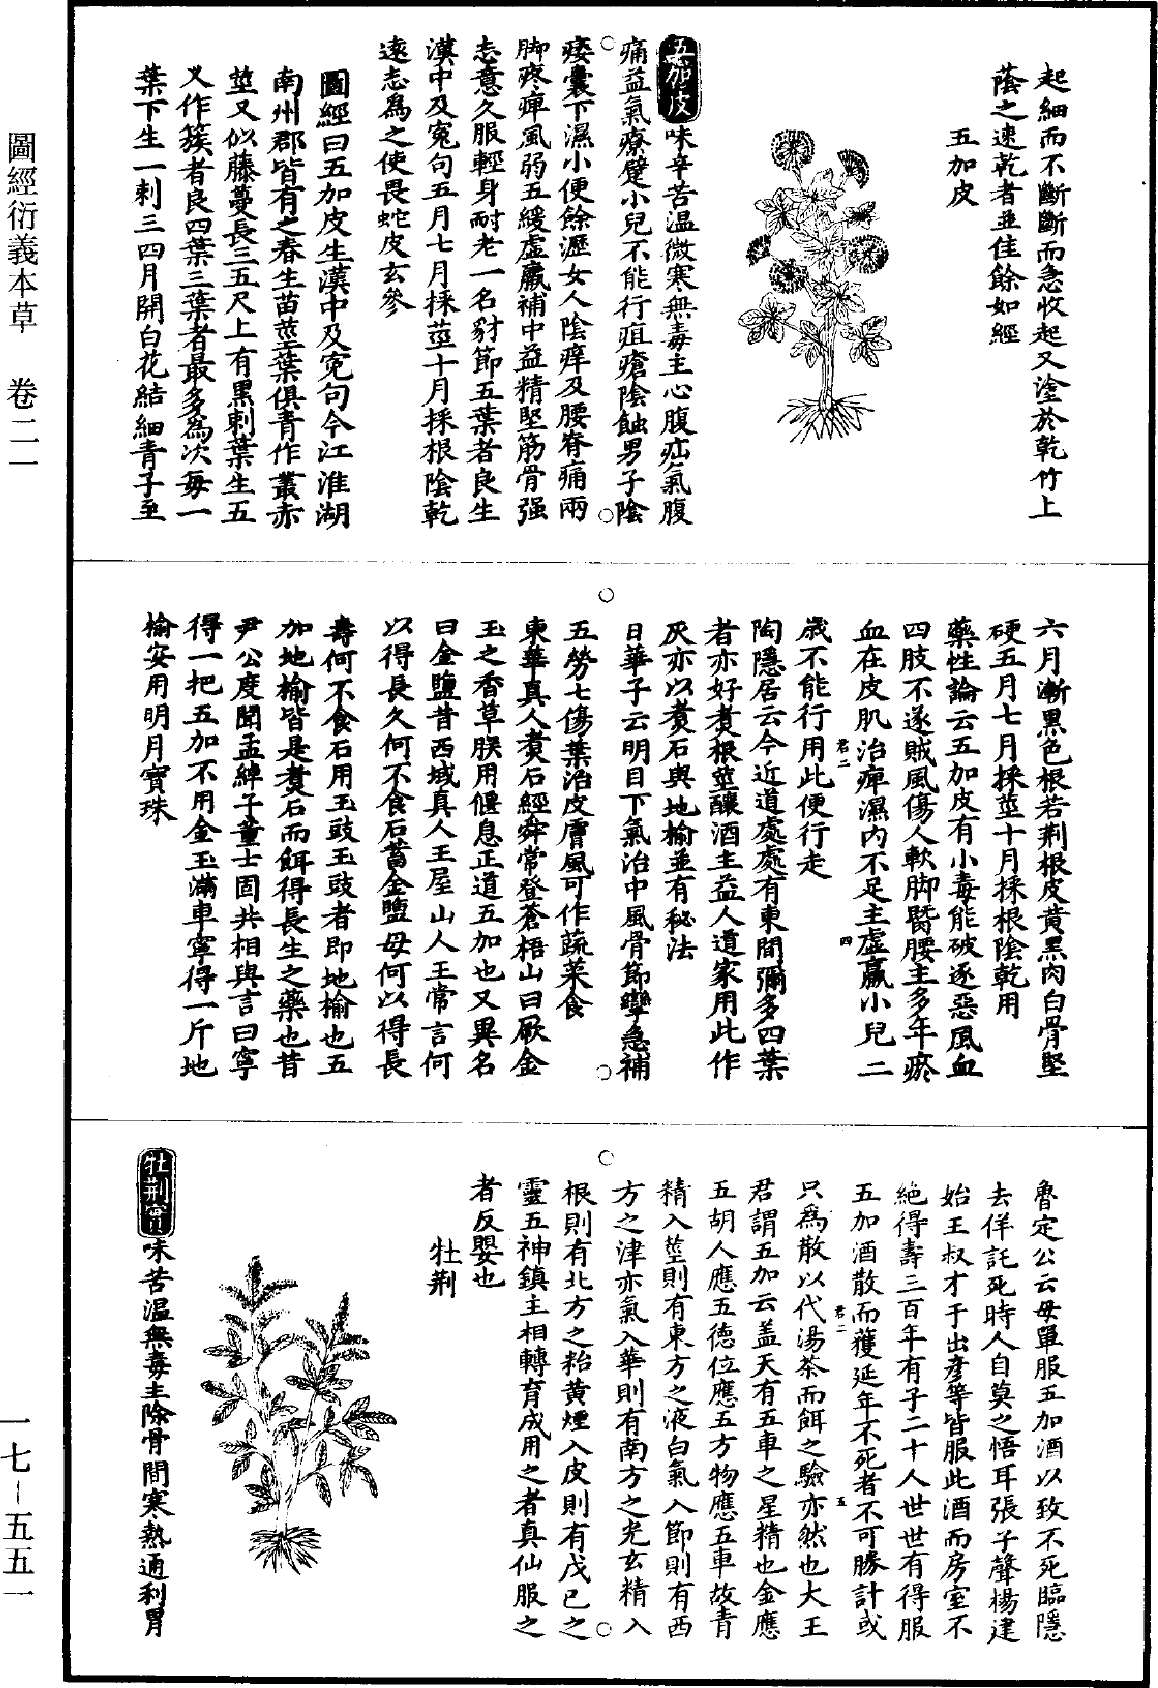 圖經衍義本草　卷二一
一七－五五一
起細而不斷斷而急收起又塗於乾竹上
蔭之速乾者並佳餘如經
五加皮
五加皮味辛苦溫微寒無毒主心腹疝氣腹
痛益氣療躄小兒不能行疽瘡陰蝕男子陰
痿囊下濕小便餘瀝女人陰痒及腰脊痛兩
脚疼痺風弱五緩虛羸補中益精堅筋骨强
志意久服輕身耐老一名豺節五葉者良生
漢中及寃句五月七月採莖十月採根陰乾
遠志為之使畏蛇皮玄參
圖經曰五加皮生漢中及寃句今江淮湖
南州郡皆有之春生苗莖葉俱青作叢赤
莖又似藤蔓長三五尺上有黑刺葉生五
叉作簇者良四葉三葉者最多為次每一
葉下生一刺三四月開白花結細青子至
六月漸黑色根若荆根皮黄黑肉白骨堅
硬五月七月採莖十月採根陰乾用
藥性論云五加皮有小毒能破逐惡風血
四肢不遂賊風傷人軟脚䐴腰主多年瘀
血在皮肌治痺濕內不足主虛羸小兒二
歲不能行用此便行走
陶隱居云今近道處處有東間彌多四葉
者亦好煑根莖釀酒主益人道家用此作
灰亦以煑石與地榆並有秘法
日華子云明目下氣治中風骨節攣急補
五勞七傷葉治皮膚風可作蔬菜食
東華真人煑石經舜常登蒼梧山曰厥金
玉之香草朕用偃息正道五加也又異名
曰金鹽昔西域真人王屋山人王常言何
以得長久何不食石蓄金鹽母何以得長
壽何不食石用玉豉玉豉者即地榆也五
加地榆皆是煑石而餌得長生之藥也昔
尹公度聞孟綽子董士固共相與言曰寧
得一把五加不用金玉滿車寧得一斤地
榆安用明月寶珠
魯定公云母單服五加酒以致不死臨隱
去佯託死時人自莫之悟耳張子聲楊建
始王叔才于出彥等皆服此酒而房室不
絶得壽三百年有子二十人世世有得服
五加酒散而獲延年不死者不可勝計或
只為散以代湯茶而餌之驗亦然也大王
君謂五加云盖天有五車之星精也金應
五胡人應五德位應五方物應五車故青
精入莖則有東方之液白氣入節則有西
方之津赤氣入華則有南方之光玄精入
根則有北方之粭黄烟入皮則有戊已之
靈五神鎮主相轉育成用之者真仙服之
者反嬰也
牡荆
牡荆實味苦温無毒主除骨間寒熱通利胃